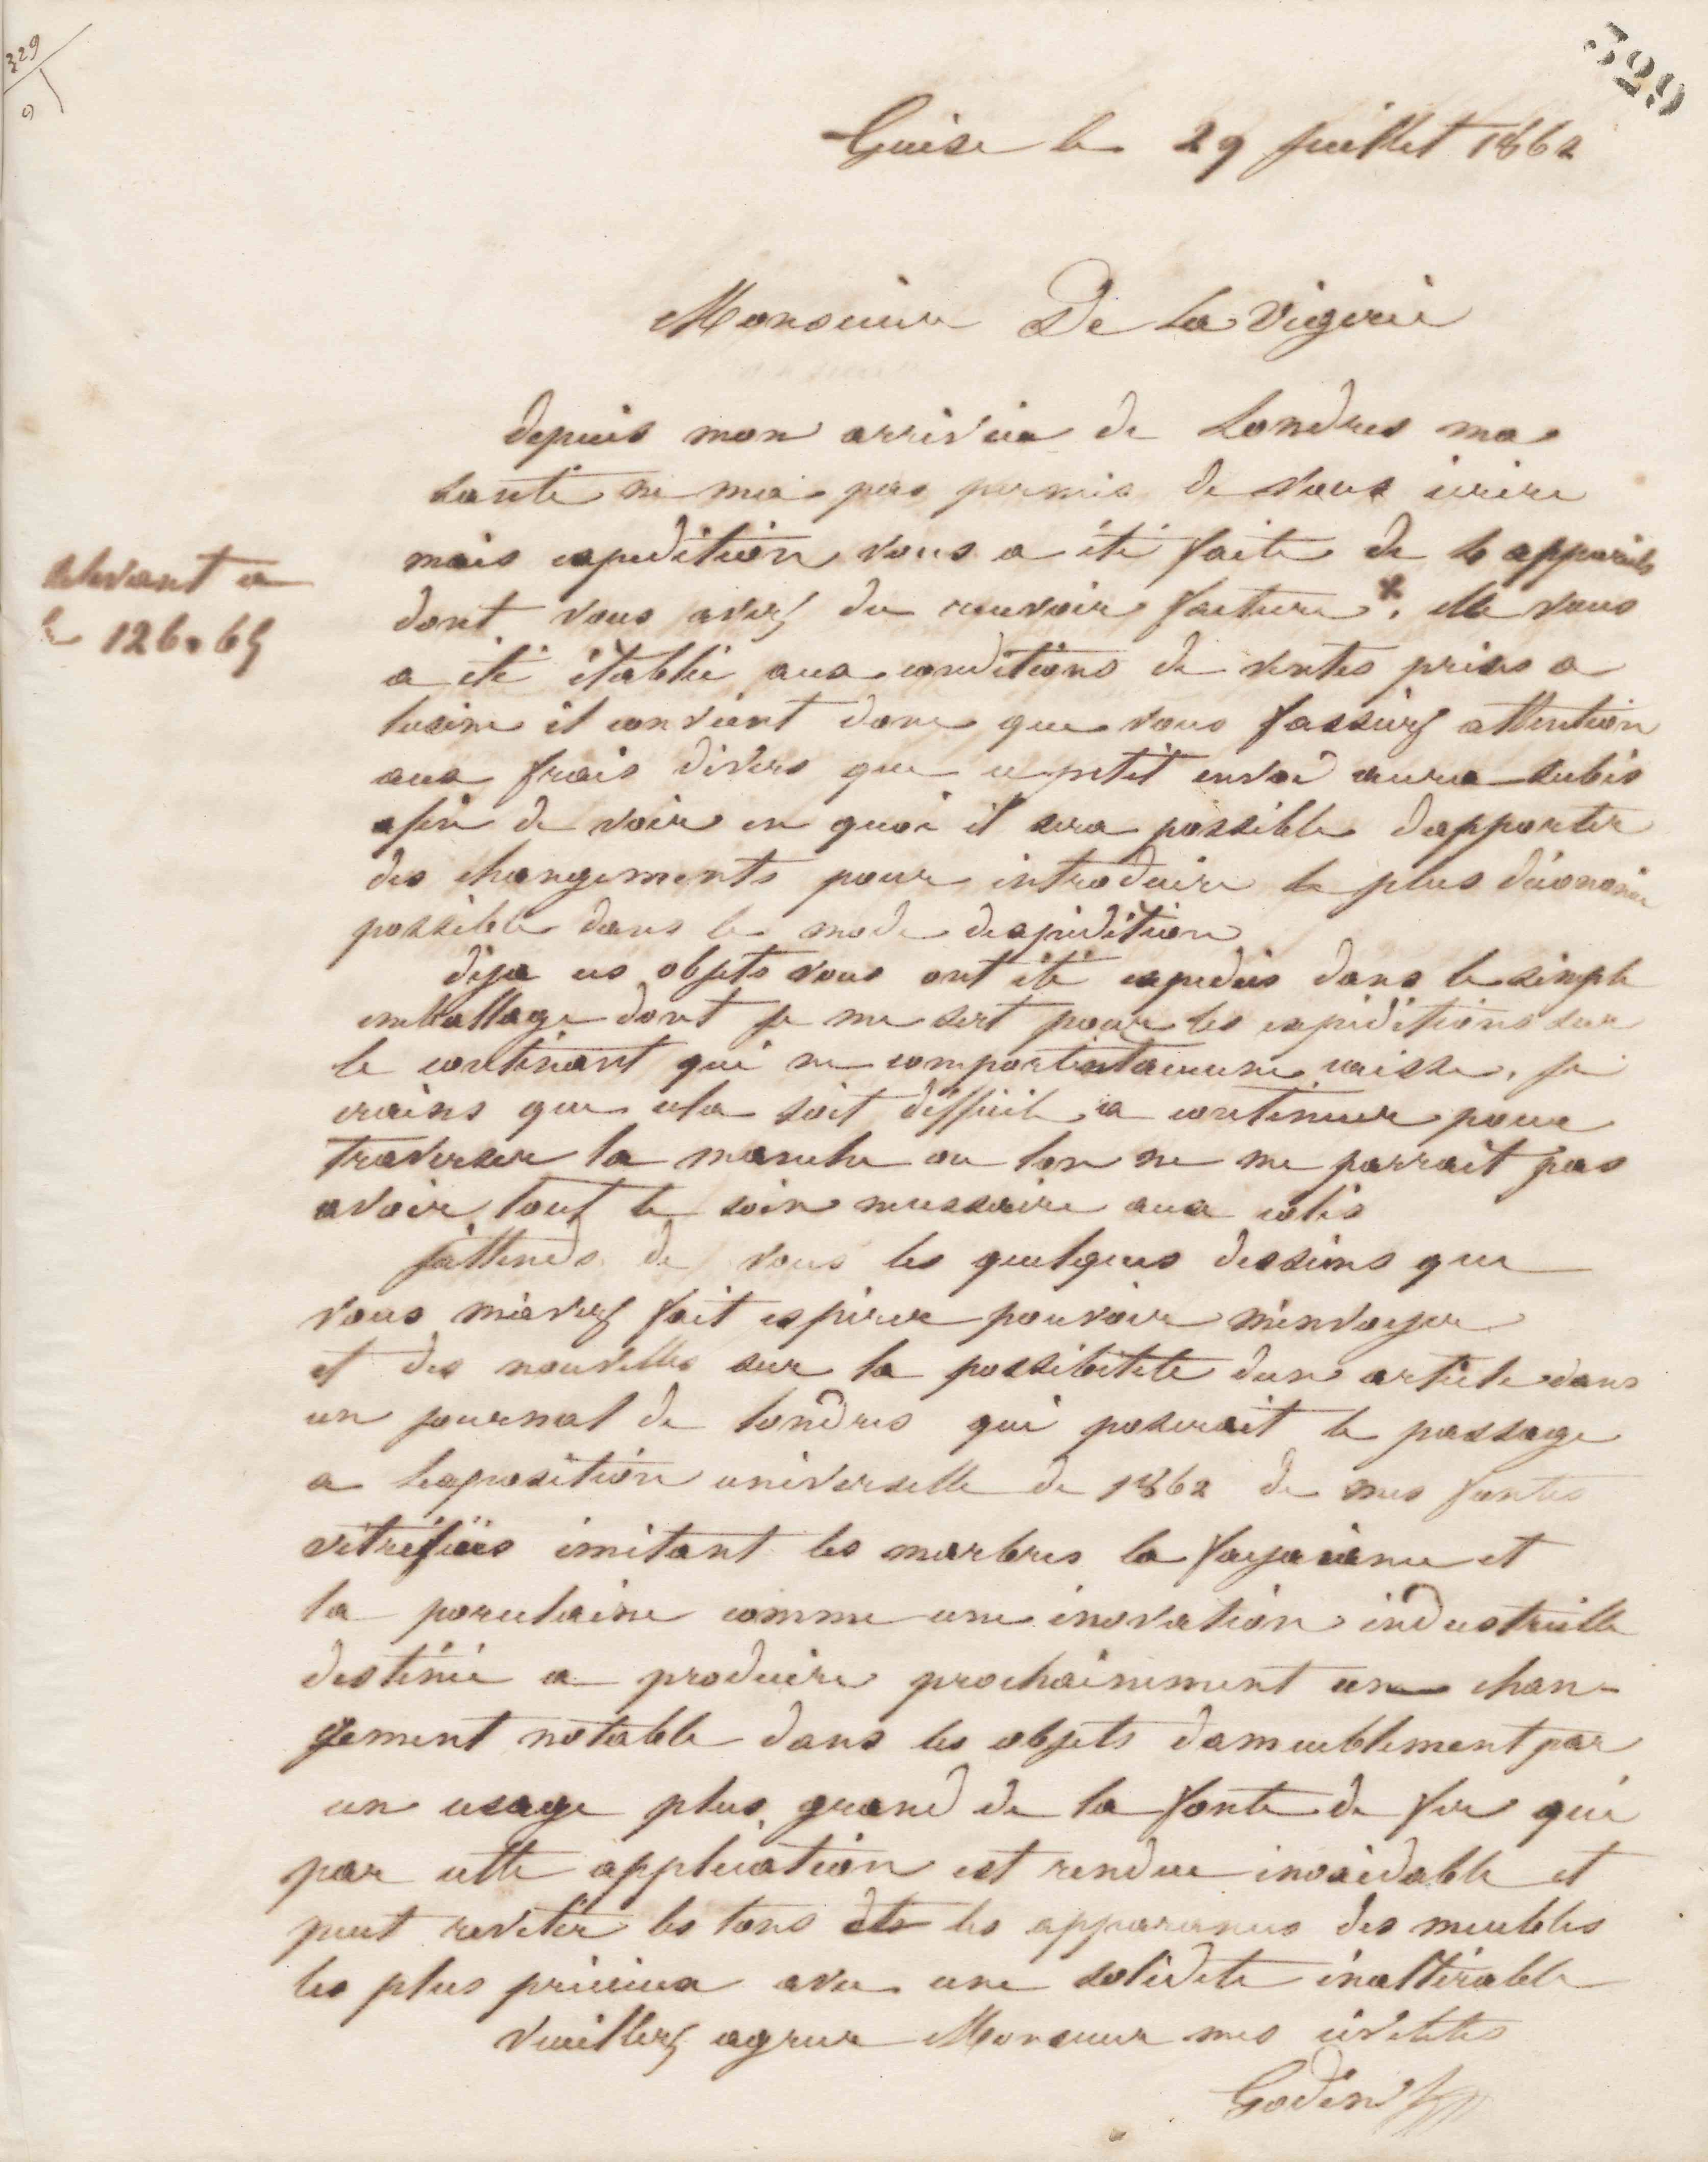 329
9
329
Guise le 29 juillet 1862
Monsieur De la Vigerie
depuis mon arrivée de Londres ma
santé ne ma pas permis de vous écrire
mais expédition vous a été faite de 6 appareils
dont vous avez du recevoir facture *, elle vous
sélevant a
f 126.65
a été établie aux conditions de ventes prises a
lusine il convient donc que vous fassiez attention
aux frais divers que ce petit envoi aura subis
afin de voir en quoi il sera possible dapporter
des changements pour introduire le plus déconomie
possible dans le mode dexpédition
déja ces objets vous ont été expediés dans le simple
emballage dont je me sert pour les expéditions sur
le continant qui ne comportent aucune caisse, je
crains que cela soit difficile a continuer pour
traverser la manche ou lon ne me parrait pas
avoir tout le soin necessaire aux colis
jattends de vous les quelques dessins que
vous m'avez fait espérer pouvoir m'envoyer
et des nouvelles sur la possibilité dun article dans
un journal de londres qui poserait le passage
a lexposition universelle de 1862 de mes fontes
vitrifiées imitant les marbres la fayance et
la porcelaine comme une inovation industrielle
destinée a produire prochainement un chan-
gement notable dans les objets dameublement par
un usage plus grand de la fonte de fer qui
par cette application est rendue inoxidable et
peut revétir les tons et les apparances des meubles
les plus précieux avec une solidité inaltérable
veuillez agréer Monsieur mes civilités
Godin